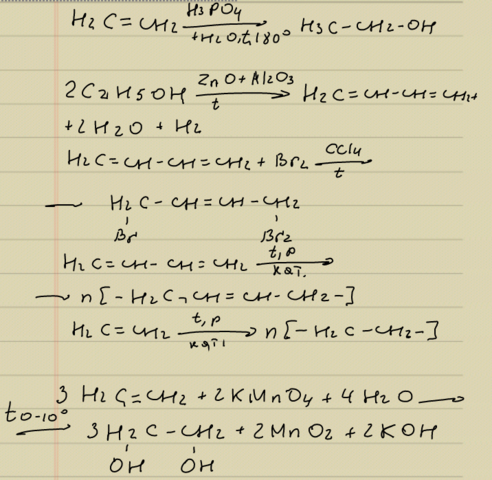 H₂C=CH₂ H₃PO₄ +H₂O,t,180° → H₃C-CH₂-OH
2C₂H5OH ZnO+Al₂O₃ t → H₂C=CH-CH=CH₂+
+2H₂O + H₂
H₂C=CH-CH=CH₂ + Br₂ CCl₄ t →
— H₂C-CH=CH-CH₂
Br Br₂
H₂C=CH-CH=CH₂ t,p кат. →
→ n[-H₂C-CH=CH-CH₂-]
H₂C=CH₂ t,p кат. → n[-H₂C-CH₂-]
3 H₂C=CH₂ + 2KMnO₄ + 4H₂O →
t 0-10° 3H₂C-CH₂ + 2MnO₂ + 2KOH
OH OH